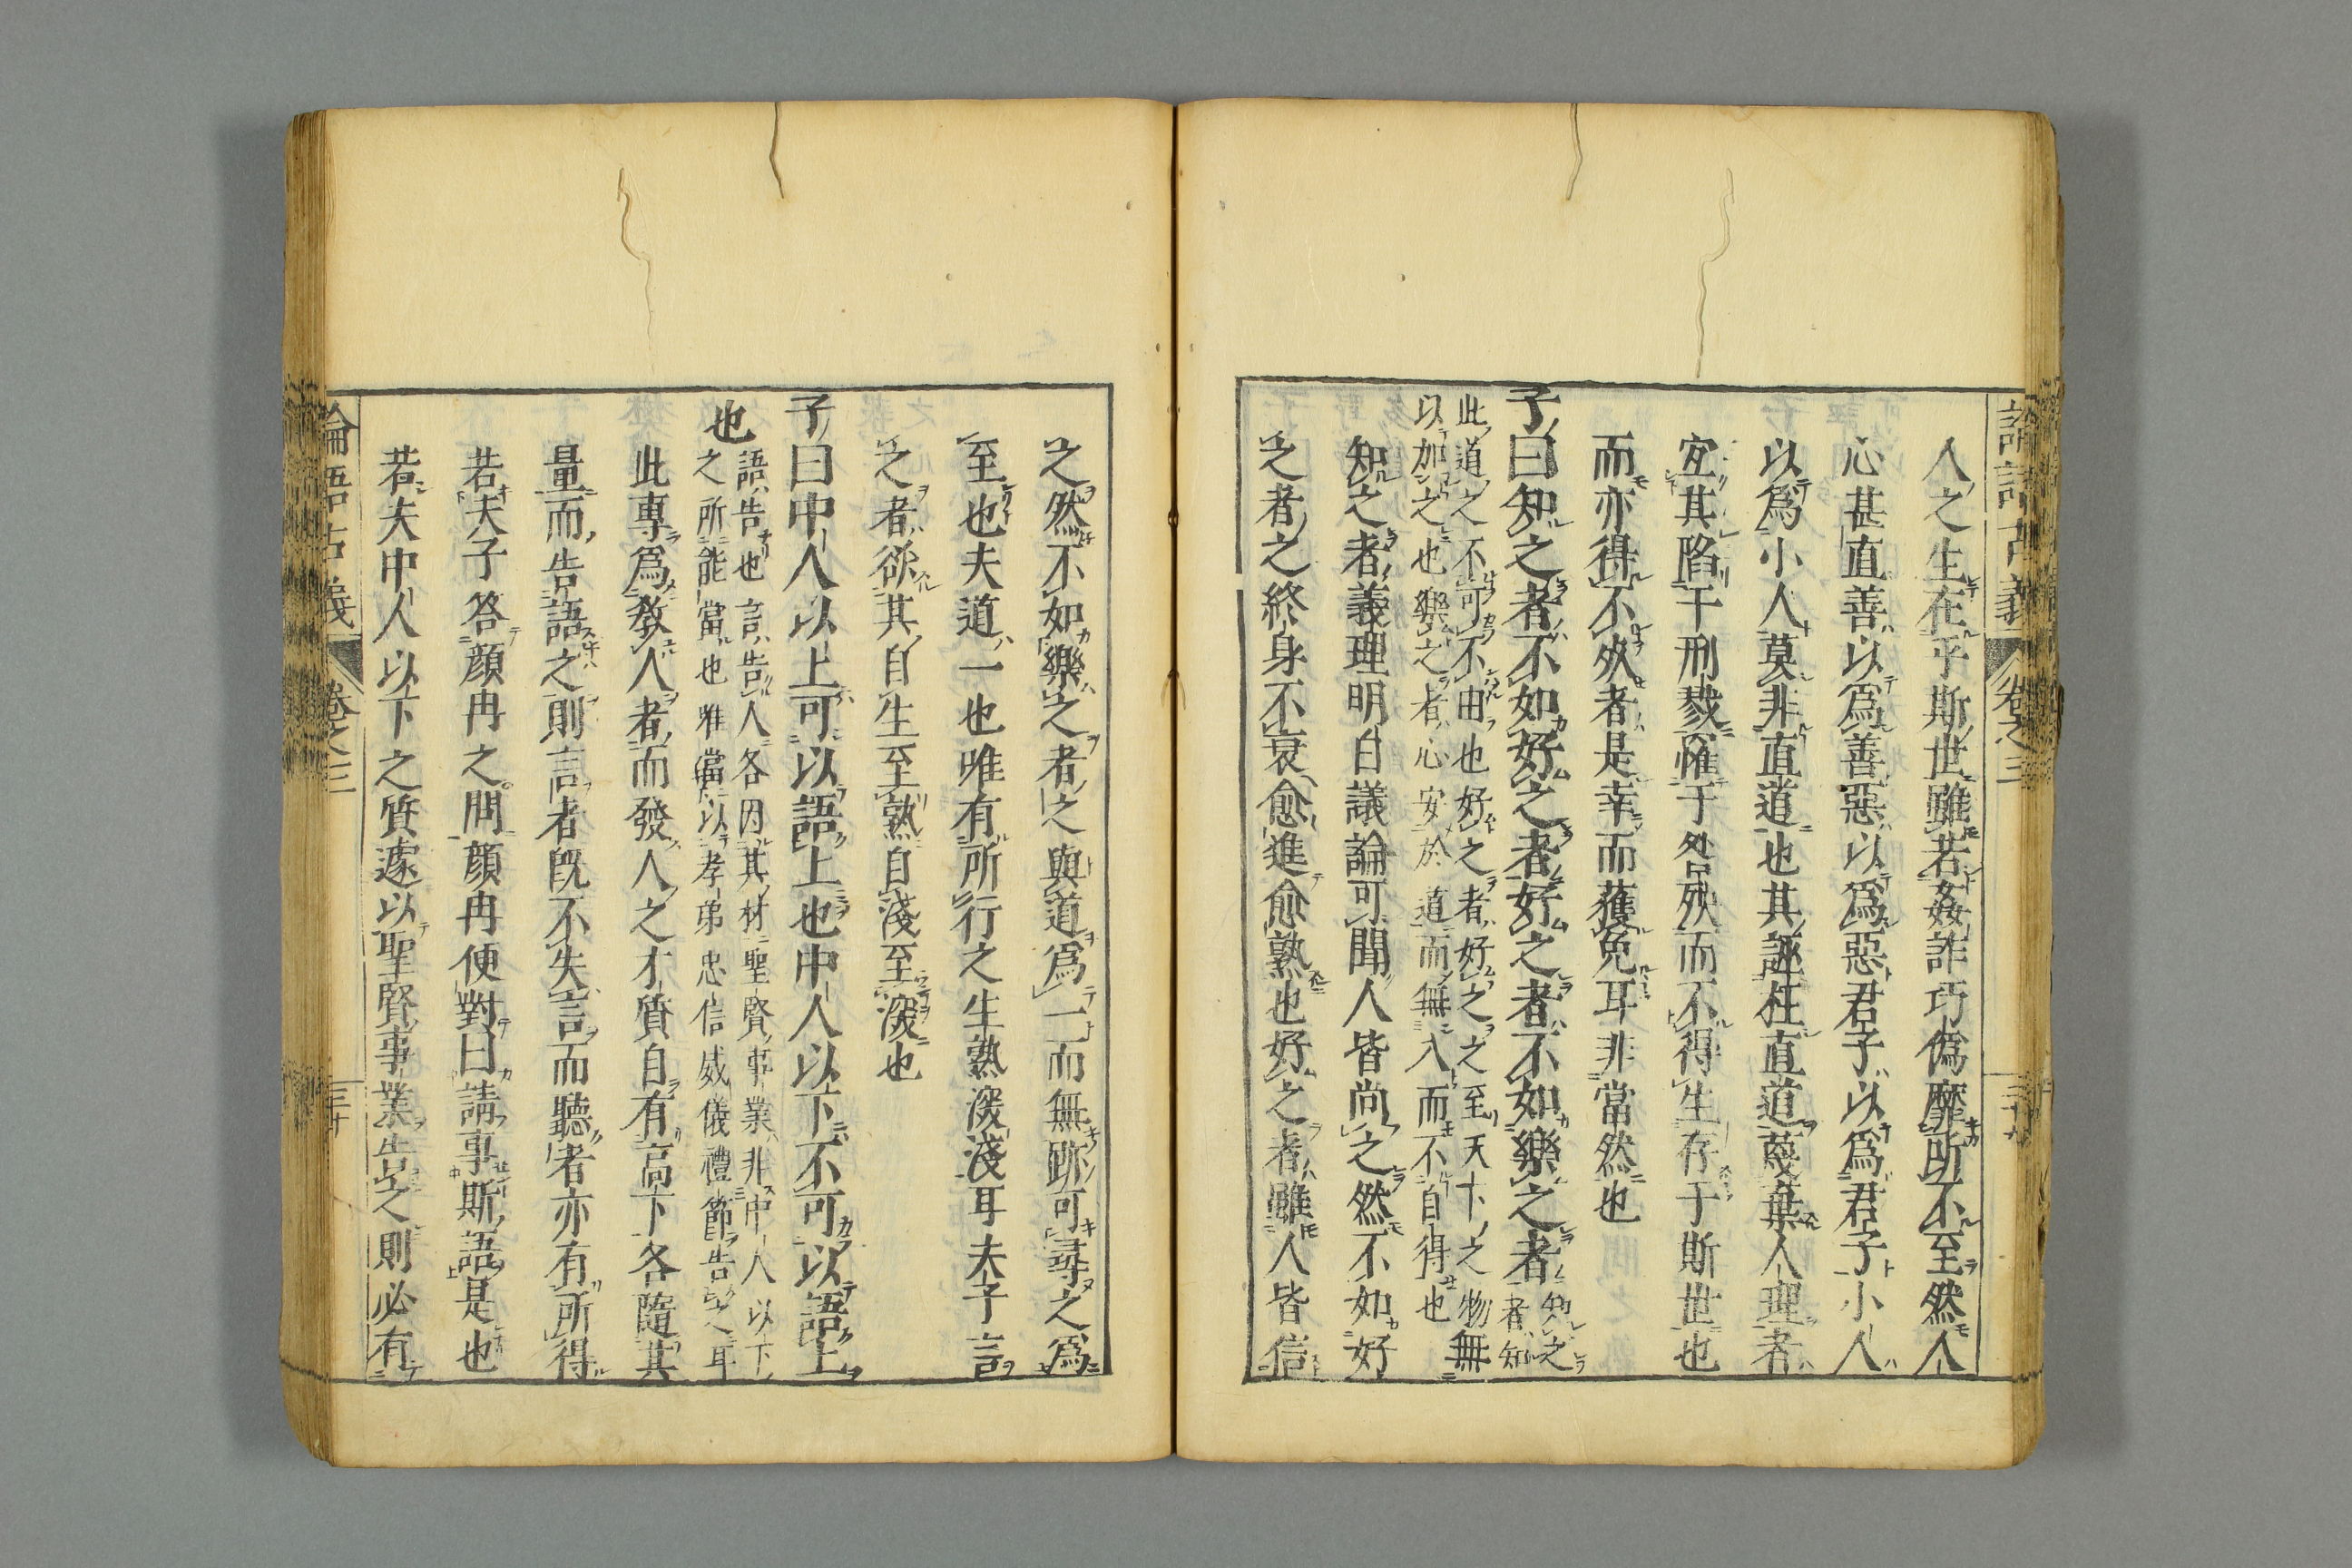 人之生在乎斯世雖若姦詐巧僞靡所不至然人
心甚直善以爲善惡以爲惡君子以爲君子小人
以爲小人莫非直道也其誣枉直道蔑棄人理者
宜其陷于刑戮罹于咎殃而不得生存于斯世也
而亦得不死者是幸而獲免耳非當然也
子曰知之者不如好之者好之者不如樂之者知之者知
此道之不可不由也好之者好之之至天下之物無
以加之也樂之者心安於道而無入而不自得也
知之者義理明白議論可聞人皆尚之然不如好
之者之終身不衰愈進愈熟也好之者雖人皆信
之然不如樂之者之與道爲一而無跡可尋之爲
至也夫道一也唯有所行之生熟深淺耳夫子言
之者欲其自生至熟自淺至深也
子曰中人以上可以語上也中人以下不可以語上
也語告也言告人各因其材聖賢事業非中人以下
之所能當也唯當以孝弟忠信威儀禮節告之耳
此專爲教人者而發人之才質自有高下各隨其
量而告語之則言者既不失言而聽者亦有所得
若夫子答顔冉之問顔冉便對曰請事斯語是也
若夫中人以下之質遽以聖賢事業告之則必有
論語古義 卷之三 三十